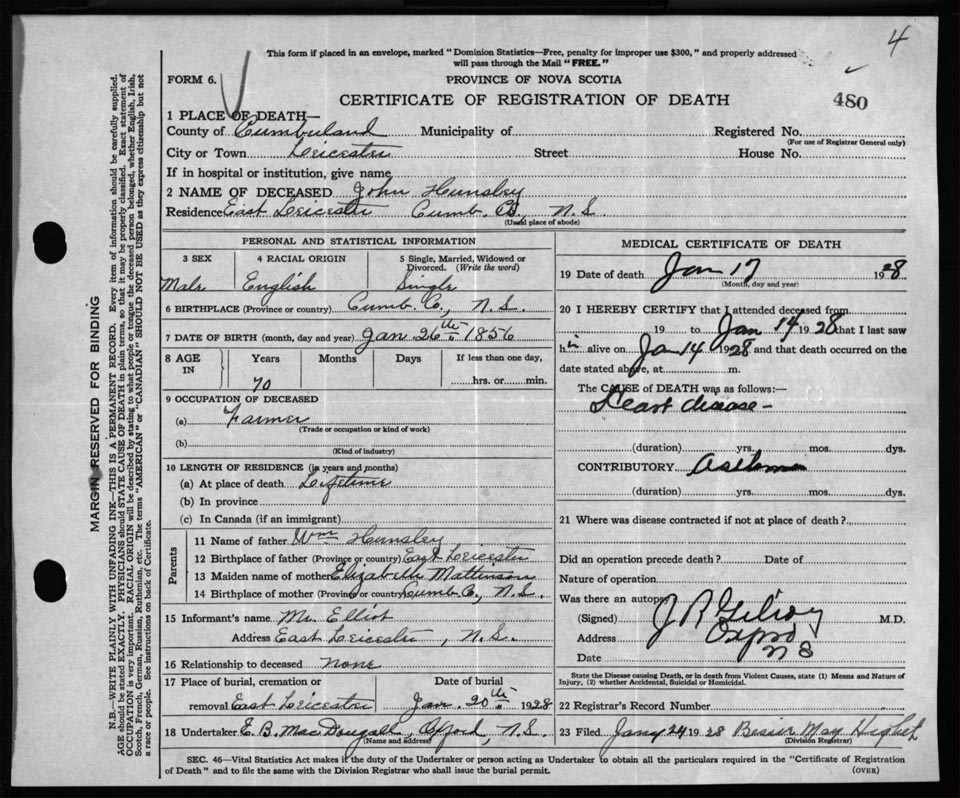 4
This form if placed in an envelope, marked "Dominion Statistics—Free, penalty for improper use $300," and properly addressed
will pass through the Mail "FREE."
FORM 6.
PROVINCE OF NOVA SCOTIA
CERTIFICATE OF REGISTRATION OF DEATH
480
1 PLACE OF DEATH—
County of Cumberland Municipality of Registered No.
(For use of Registrar General only)
City or Town Leicester Street House No.
If in hospital or institution, give name
2 NAME OF DECEASED John Hunsley
Residence East Leicester Cumb. Co., N.S
(Usual place of abode)
PERSONAL AND STATISTICAL INFORMATION
3 SEX 4 RACIAL ORIGIN 5 Single, Married, Widowed or Divorced. (Write the word)
Male English Single
6 BIRTHPLACE (Province or country) Cumb. Co., N.S.
7 DATE OF BIRTH (month, day and year) Jan 26th 1856
8 AGE IN Years Months Days If less than one day,
70 hrs. or min.
9 OCCUPATION OF DECEASED
(a) Farmer
(Trade or occupation or kind of work)
(b)
(Kind of industry)
10 LENGTH OF RESIDENCE (in years and months)
(a) At place of death Lifetime
(b) In province
(c) In Canada (if an immigrant)
Parents
11 Name of father Wm Hunsley
12 Birthplace of father (Province or country) East Leicester
13 Maiden name of mother Elizabeth Mattinson
14 Birthplace of mother (Province or country) Cumb Co., N.S.
15 Informant's name Mr. Elliot
Address East Leicester, N.S.
16 Relationship to deceased none
17 Place of burial, cremation or Date of burial
removal East Leicester Jan. 20th 1928
18 Undertaker E. B. MacDougall, Oxford, N.S.
(Name and address)
MEDICAL CERTIFICATE OF DEATH
19 Date of death Jan 17 1928
(Month, day and year)
20 I HEREBY CERTIFY that I attended deceased from
19 to Jan 14 1928 that I last saw
him alive on Jan 14 1928 and that death occurred on the
date stated above, at m.
The CAUSE of DEATH was as follows:—
Heart disease -
(duration) yrs. mos. dys.
CONTRIBUTORY Asthma
(duration) yrs. mos. dys.
21 Where was disease contracted if not at place of death?
Did an operation precede death? Date of
Nature of operation
Was there an autopsy
(Signed) J R Gilroy M.D.
Address Oxford
Date N S
State the Disease causing Death, or in death from Violent Causes, state (1) Means and Nature of
Injury, (2) whether Accidental, Suicidal or Homicidal.
22 Registrar's Record Number
23 Filed Jany 24 1928 Bessie May
(Division Registrar)
SEC. 46—Vital Statistics Act makes it the duty of the Undertaker or person acting as Undertaker to obtain all the particulars required in the "Certificate of Registration
of Death" and to file the same with the Division Registrar who shall issue the burial permit. (OVER)
MARGIN RESERVED FOR BINDING
N.B.—WRITE PLAINLY WITH UNFADING INK—THIS IS A PERMANENT RECORD. Every item of information should be carefully supplied.
AGE should be stated EXACTLY. PHYSICIANS should STATE CAUSE OF DEATH in plain terms, so that it may be properly classified. Exact statement of
OCCUPATION is very important. RACIAL ORIGIN will be described by stating to what people or tongue the deceased person belonged, whether English, Irish,
Scotch, French, German, Russian, Ruthenian, etc. The terms "AMERICAN" or "CANADIAN" SHOULD NOT BE USED as they express citizenship but not
a race or people. See instructions on back of Certificate.